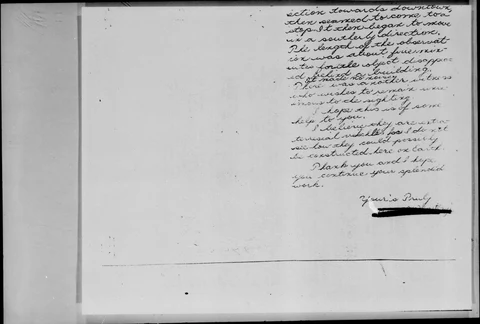 ection towards downtown,
then seemed to come to a
stop. It then began to move
in a southerly direction.
The length of the observat-
ion was about five min-
utes for the object disappear-
ed behind a building.
It made no noise.
There was another witness
who wishes to remain
to the sighting
I hope this is of some
help to you.
I believe they are
vehicles for I do not
see how they could possibly
be constructed here on Earth.
Thank you and I hope
you continue your splendid
work.
Your's Truly